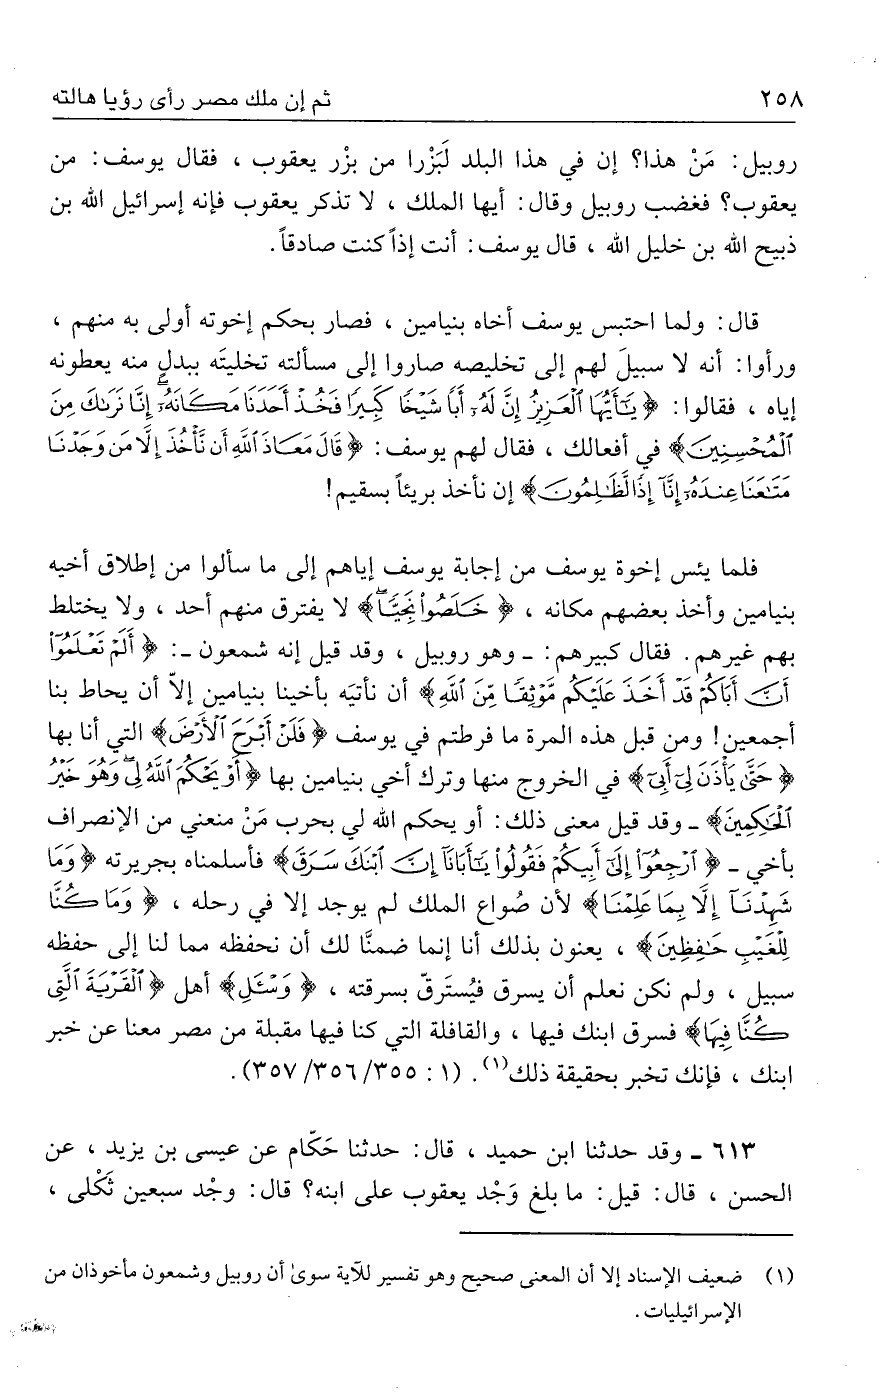 ٢٥٨
ثم إن ملك مصر رأى رؤيا هالته
روبيل: مَنْ هذا؟ إن في هذا البلد لَبَزْرا من بزْر يعقوب ، فقال يوسف: من
يعقوب؟ فغضب روبيل وقال: أيها الملك ، لا تذكر يعقوب فإنه إسرائيل الله بن
ذبيح الله بن خليل الله ، قال يوسف: أنت إذاً كنت صادقاً.
قال: ولما احتبس يوسف أخاه بنيامين ، فصار بحكم إخوته أولى به منهم ،
ورأوا: أنه لا سبيلَ لهم إلى تخليصه صاروا إلى مسألته تخليتَه ببدلٍ منه يعطونه
إياه ، فقالوا: ﴿ يَٰٓأَيُّهَا ٱلْعَزِيزُ إِنَّ لَهُۥٓ أَبًا شَيْخًا كَبِيرًا فَخُذْ أَحَدَنَا مَكَانَهُۥٓ ۖ إِنَّا نَرَىٰكَ مِنَ
ٱلْمُحْسِنِينَ﴾ في أفعالك ، فقال لهم يوسف: ﴿ قَالَ مَعَاذَ ٱللَّهِ أَن نَّأْخُذَ إِلَّا مَن وَجَدْنَا
مَتَٰعَنَا عِندَهُۥٓ إِنَّآ إِذًا لَّظَٰلِمُونَ﴾ إن نأخذ بريئاً بسقيم!
فلما يئس إخوة يوسف من إجابة يوسف إياهم إلى ما سألوا من إطلاق أخيه
بنيامين وأخذ بعضهم مكانه ، ﴿ خَلَصُوا۟ نَجِيًّا ۖ﴾ لا يفترق منهم أحد ، ولا يختلط
بهم غيرهم. فقال كبيرهم: ـ وهو روبيل ، وقد قيل إنه شمعون ـ: ﴿ أَلَمْ تَعْلَمُوٓا۟
أَنَّ أَبَاكُمْ قَدْ أَخَذَ عَلَيْكُم مَّوْثِقًا مِّنَ ٱللَّهِ﴾ أن نأتيَه بأخينا بنيامين إلاّ أن يحاط بنا
أجمعين! ومن قبل هذه المرة ما فرطتم في يوسف ﴿ فَلَنْ أَبْرَحَ ٱلْأَرْضَ﴾ التي أنا بها
﴿ حَتَّىٰ يَأْذَنَ لِىٓ أَبِىٓ﴾ في الخروج منها وترك أخي بنيامين بها ﴿ أَوْ يَحْكُمَ ٱللَّهُ لِى ۖ وَهُوَ خَيْرُ
ٱلْحَٰكِمِينَ﴾ ـ وقد قيل معنى ذلك: أو يحكم الله لي بحرب مَنْ منعني من الإنصراف
بأخي ـ ﴿ ٱرْجِعُوٓا۟ إِلَىٰٓ أَبِيكُمْ فَقُولُوا۟ يَٰٓأَبَانَآ إِنَّ ٱبْنَكَ سَرَقَ﴾ فأسلمناه بجريرته ﴿ وَمَا
شَهِدْنَآ إِلَّا بِمَا عَلِمْنَا﴾ لأن صُواع الملك لم يوجد إلا في رحله ، ﴿ وَمَا كُنَّا
لِلْغَيْبِ حَٰفِظِينَ﴾ ، يعنون بذلك أنا إنما ضمنَّا لك أن نحفظه مما لنا إلى حفظه
سبيل ، ولم نكن نعلم أن يسرق فيُسترقّ بسرقته ، ﴿ وَسْـَٔلِ﴾ أهل ﴿ ٱلْقَرْيَةَ ٱلَّتِى
كُنَّا فِيهَا﴾ فسرق ابنك فيها ، والقافلة التي كنا فيها مقبلة من مصر معنا عن خبر
ابنك ، فإنك تخبر بحقيقة ذلك(١). (١: ٣٥٥/ ٣٥٦/ ٣٥٧).
٦١٣ ـ وقد حدثنا ابن حميد ، قال: حدثنا حَكّام عن عيسى بن يزيد ، عن
الحسن ، قال: قيل: ما بلغ وَجْد يعقوب على ابنه؟ قال: وجْد سبعين ثَكْلى ،
(١) ضعيف الإسناد إلا أن المعنى صحيح وهو تفسير للآية سوىٰ أن روبيل وشمعون مأخوذان من
الإسرائيليات.